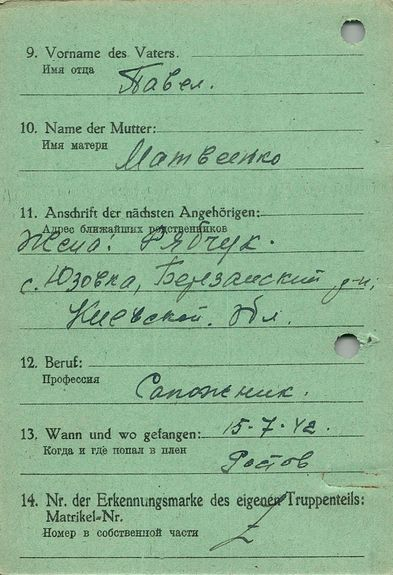 9. Vorname des Vaters.
Имя отца
Павел.
10. Name der Mutter:
Имя матери
Матвеенко
11. Anschrift der nächsten Angehörigen:
Адрес ближайших родственников
Жена: Рябчук.
с. Юзовка, Березанский р-н,
Киевской. обл.
12. Beruf:
Профессия
Сапожник.
13. Wann und wo gefangen: 15-7-42.
Когда и где попал в плен
Ростов
14. Nr. der Erkennungsmarke des eigenen Truppenteils:
Matrikel-Nr.
Номер в собственной части